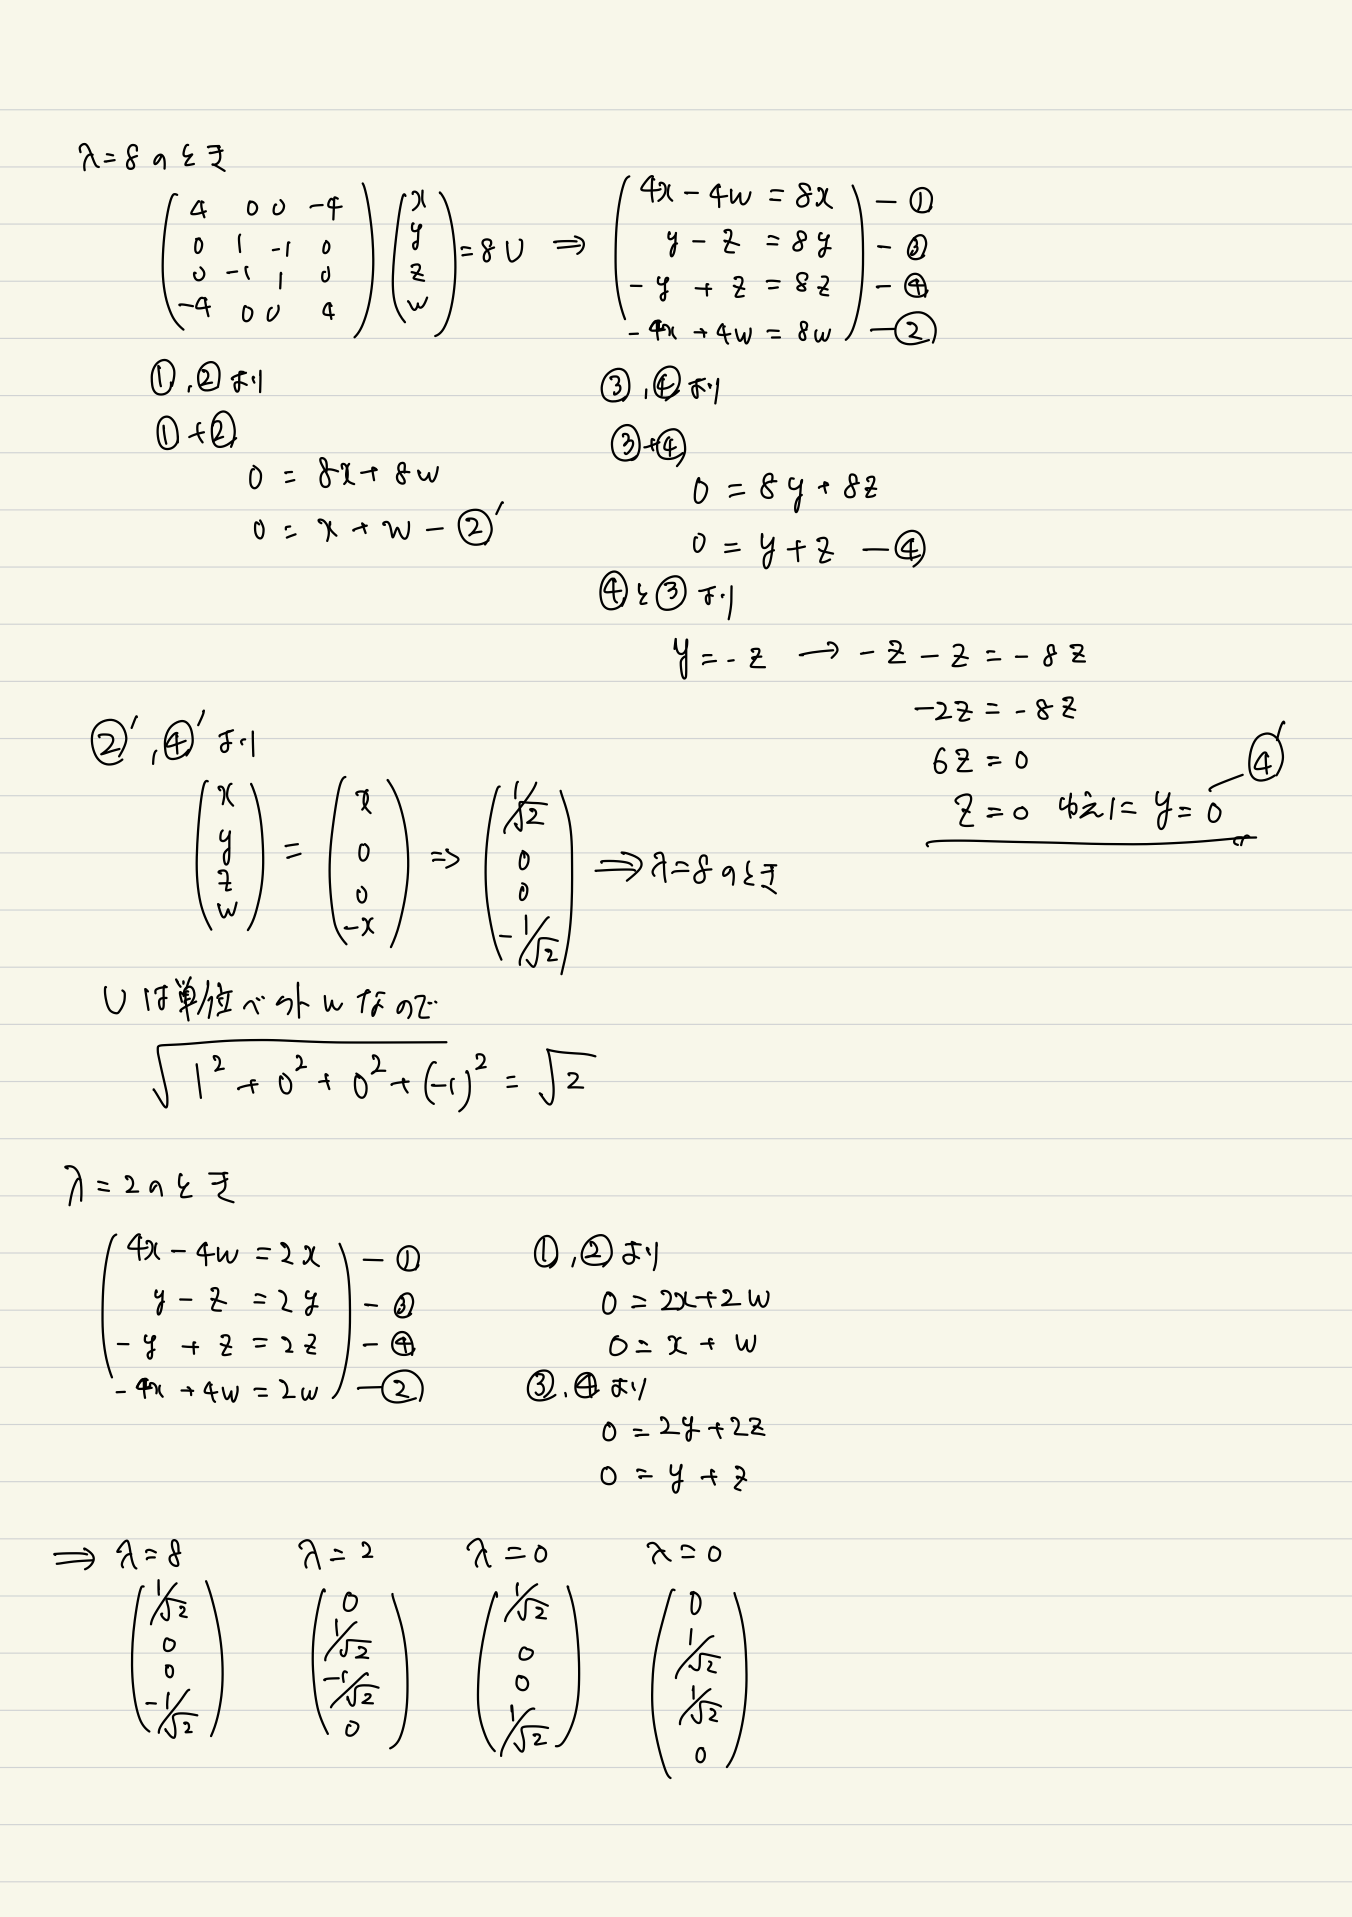 λ=8のとき
(4 0 0 -4
0 1 -1 0
0 -1 1 0
-4 0 0 4) (x
y
z
w) = 8U ⇒ (4x-4w = 8x) - ①
(y-z = 8y) - ③
(-y+z = 8z) - ④
(-4x+4w = 8w) - ②
①,②より
①+②
0 = 8x+8w
0 = x+w - ②′
③,④より
③+④
0 = 8y+8z
0 = y+z - ④
④と③より
y=-z → -z-z=-8z
-2z=-8z
6z=0
z=0 ゆえに y=0 - ④′
②′,④′より
(x
y
z
w) = (x
0
0
-x) ⇒ (1/√2
0
0
-1/√2) ⇒ λ=8のとき
Uは単位ベクトルなので
√1²+0²+0²+(-1)² = √2
λ=2のとき
(4x-4w = 2x) - ①
(y-z = 2y) - ③
(-y+z = 2z) - ④
(-4x+4w = 2w) - ②
①,②より
0 = 2x+2w
0 = x+w
③,④より
0 = 2y+2z
0 = y+z
⇒ λ=8
(1/√2
0
0
-1/√2)
λ=2
(0
1/√2
-1/√2
0)
λ=0
(1/√2
0
0
1/√2)
λ=0
(0
1/√2
1/√2
0)